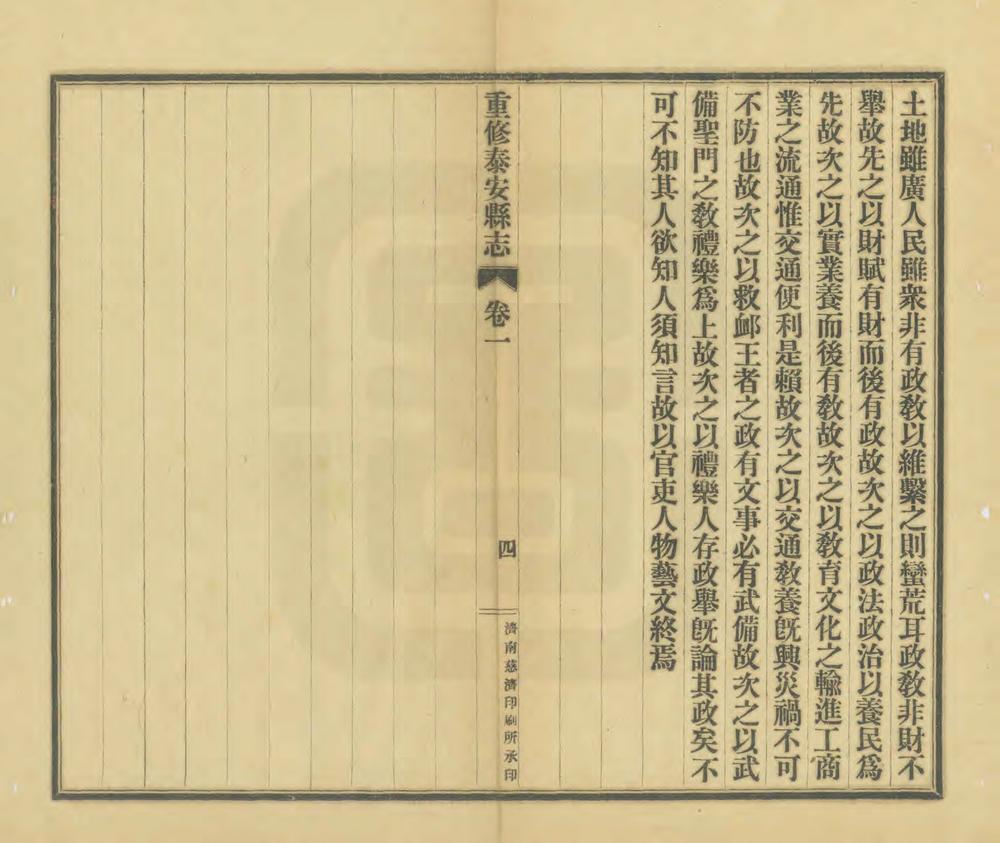 土地雖廣人民雖衆非有政敎以維繫之則蠻荒耳政敎非財不
舉故先之以財賦有財而後有政故次之以政法政治以養民爲
先故次之以實業養而後有敎故次之以敎育文化之輸進工商
業之流通惟交通便利是賴故次之以交通敎養旣興災禍不可
不防也故次之以救卹王者之政有文事必有武備故次之以武
備聖門之敎禮樂爲上故次之以禮樂人存政舉旣論其政矣不
可不知其人欲知人須知言故以官吏人物藝文終焉
重修泰安縣志 卷一 四 濟南慈濟印刷所承印